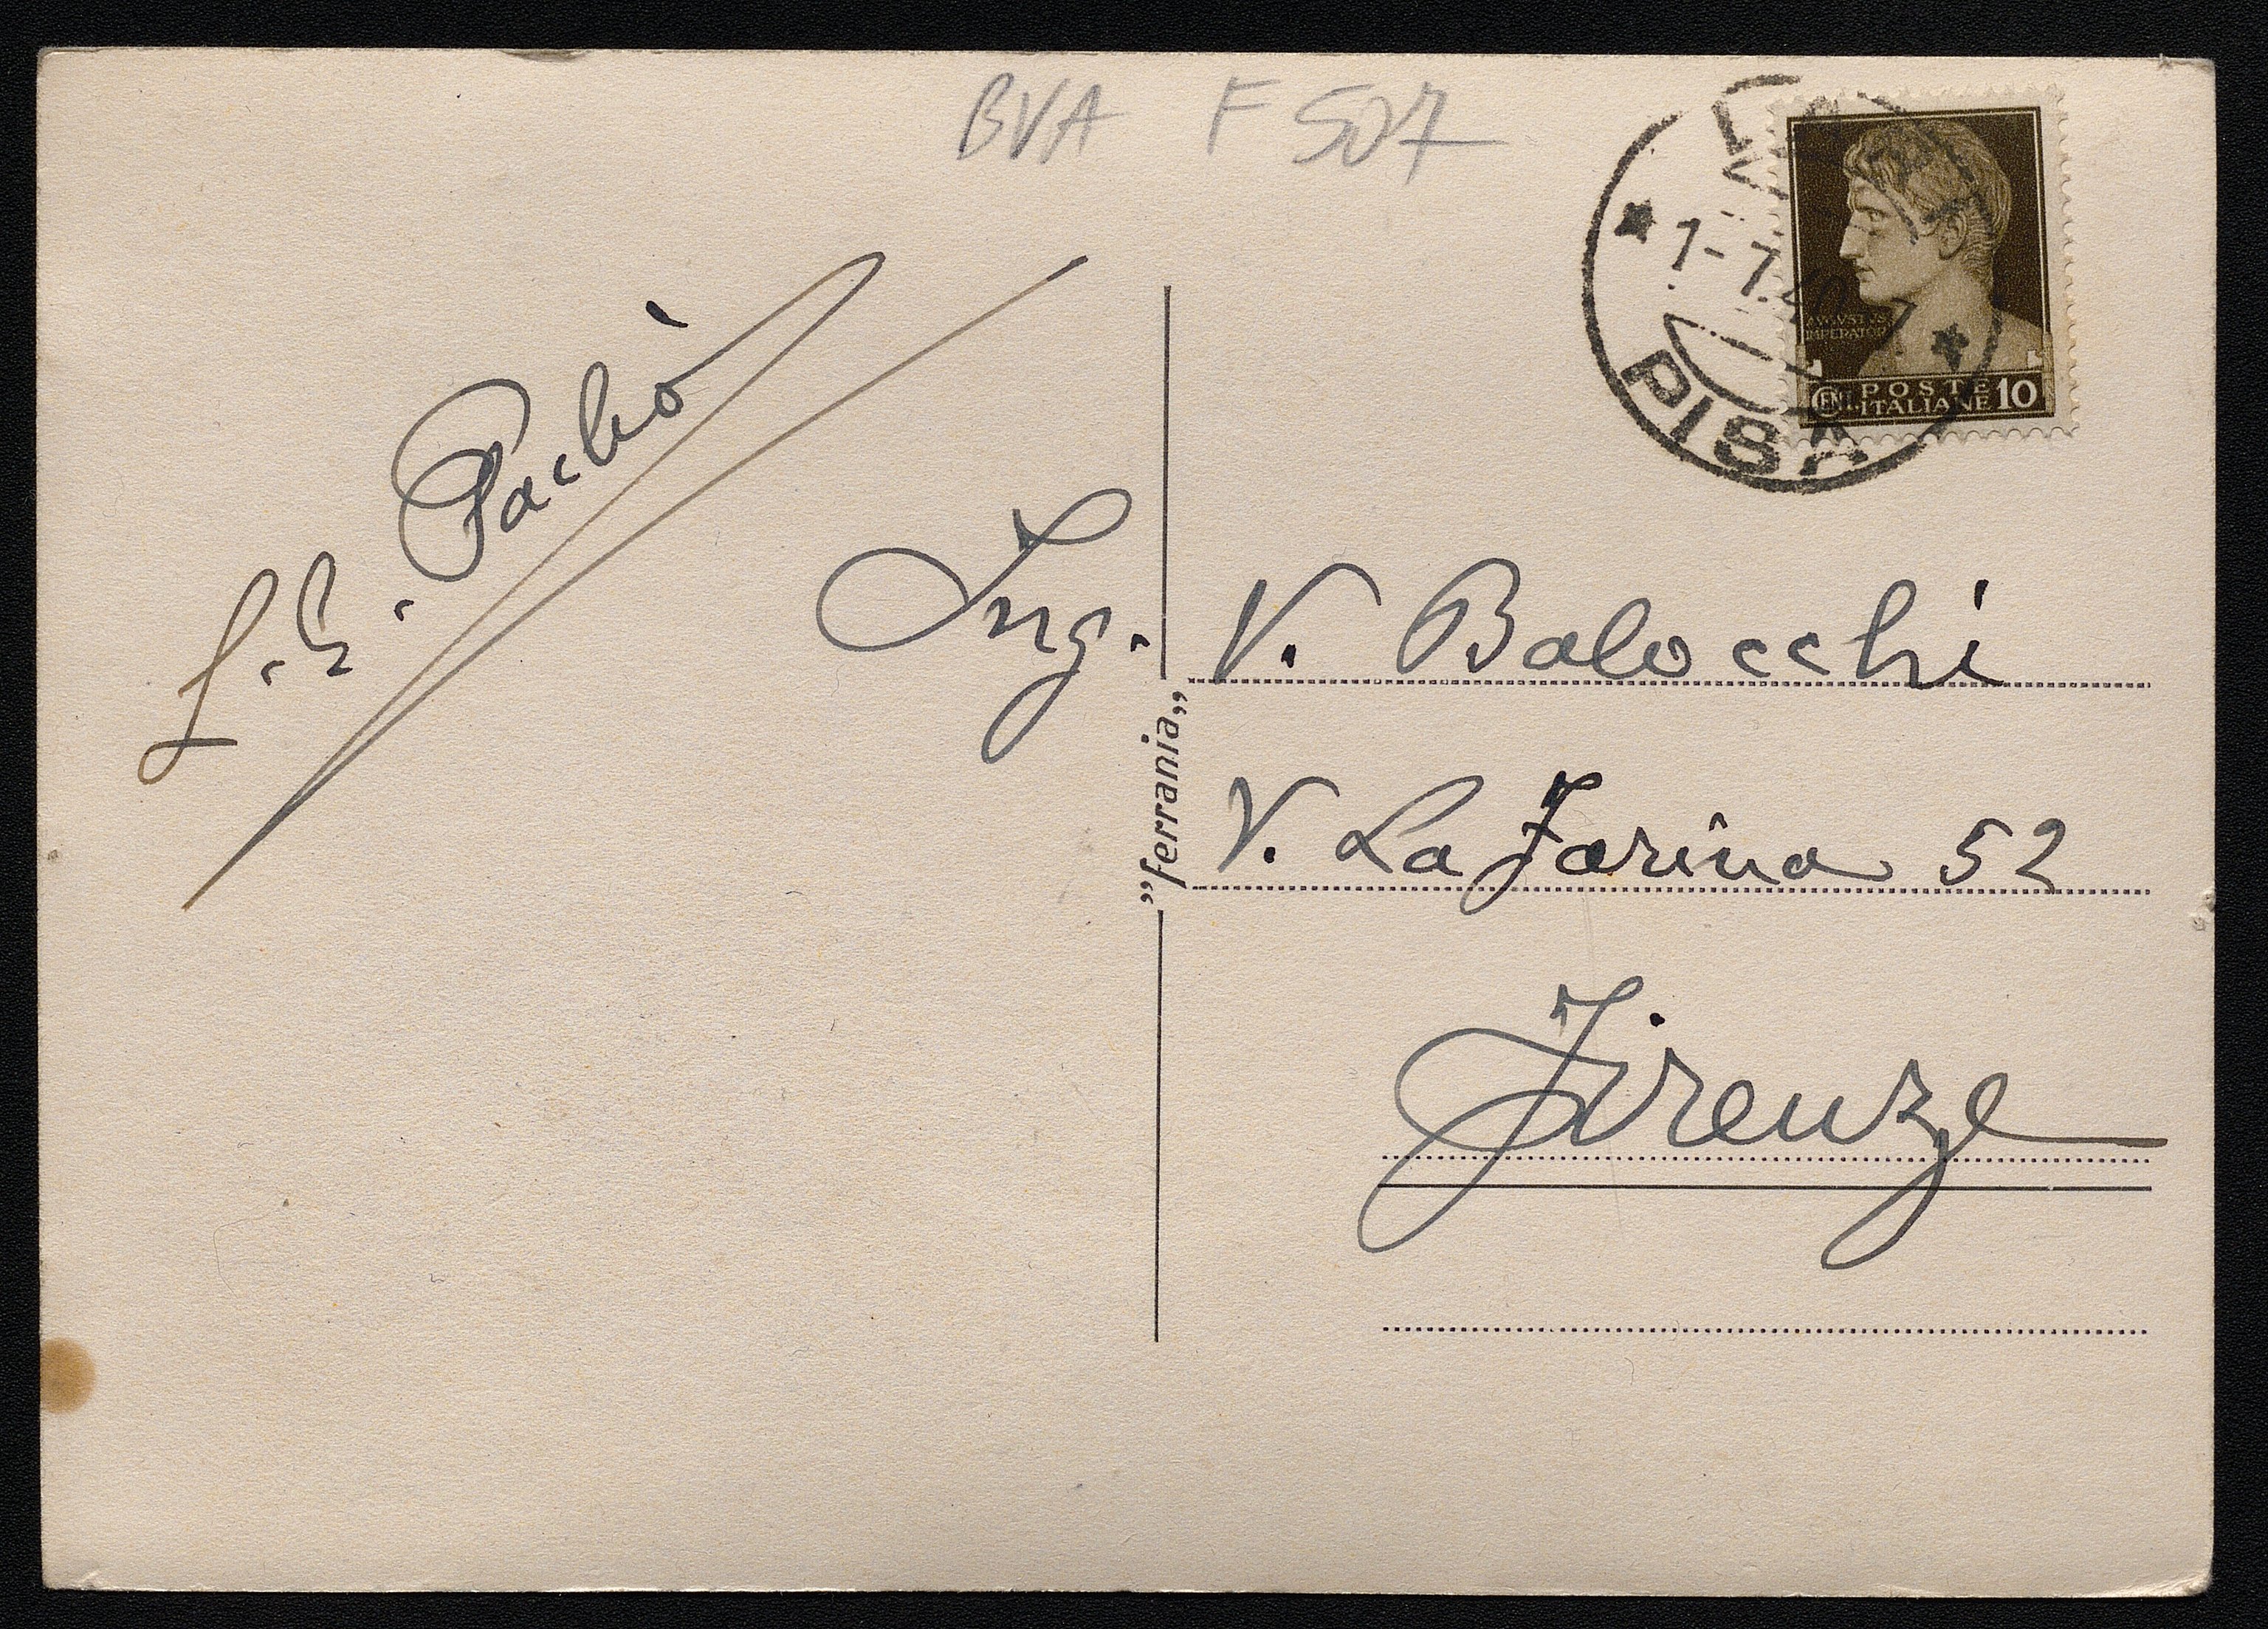 BVA F 507
1-7.40
PISA
AVGVSTVS
IMPERATOR
CENT. POSTE ITALIANE 10
Ing. V. Balocchi
V. La Farina 52
Firenze
"ferrania"